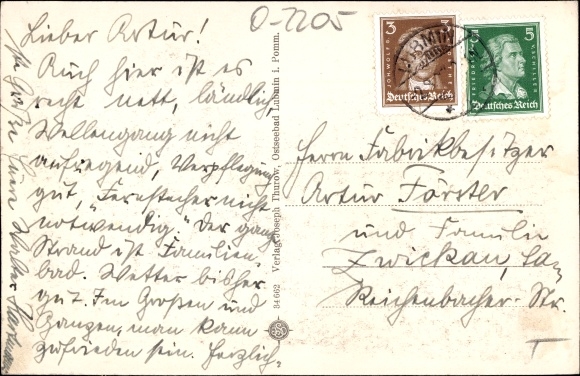 O-7205
Lieber Artur!
Auch hier ist es
recht nett, ländlich,
Wellengang nicht
aufregend, Verpflegung
gut, "Fernstecher nicht
notwendig." Der ganze
Strand ist Familien-
bad. Wetter bisher
gut. Im Großen und
Ganzen, man kann
zufrieden sein. Herzlich-
ste Grüße Euer
34662 Verlag Joseph Thurow, Ostseebad Lubmin i. Pomm.
3
JOH. WOLFG. GOETHE
Deutsches Reich
5
FRIEDRICH V. SCHILLER
Deutsches Reich
LUBMIN
Herrn Fabrikbesitzer
Artur Förster
und Familie
Zwickau, Sa.
Reichenbacher-Str.